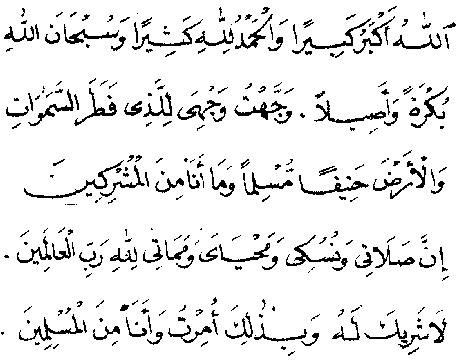 اَللهُ أَكْبَرُ كَبِيرًا وَالْحَمْدُ لِلّٰهِ كَثِيرًا وَسُبْحَانَ اللهِ
بُكْرَةً وَأَصِيلاً . وَجَّهْتُ وَجْهِيَ لِلَّذِى فَطَرَ السَّمٰوَاتِ
وَالْأَرْضَ حَنِيفًا مُّسْلِماً وَمَا أَنَا مِنَ الْمُشْرِكِينَ
إِنَّ صَلَاتِى وَنُسُكِى وَمَحْيَاىَ وَمَمَاتِى لِلّٰهِ رَبِّ الْعَالَمِينَ .
لَا شَرِيكَ لَهُ وَبِذٰلِكَ أُمِرْتُ وَأَنَا مِنَ الْمُسْلِمِينَ .